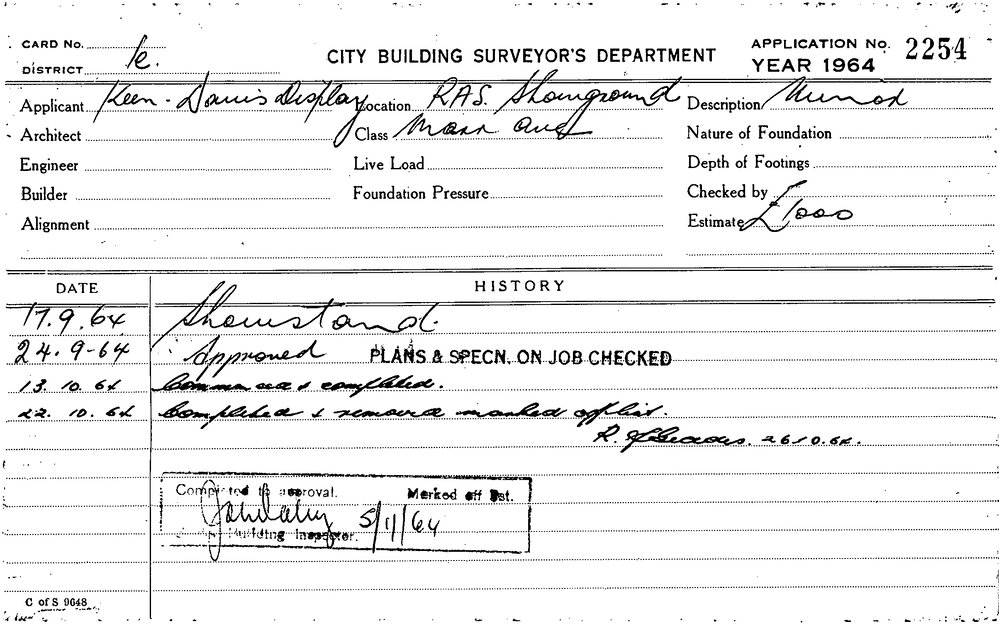 CARD No.
CITY BUILDING SURVEYOR'S DEPARTMENT
APPLICATION No. 2254
DISTRICT k.
YEAR 1964
Applicant Keen-Davis Display Location RAS. Showground Description
Architect Class Nature of Foundation
Engineer Live Load Depth of Footings
Builder Foundation Pressure Checked by
Alignment Estimate £1000
DATE HISTORY
17.9.64 Showstand.
24.9-64 Approved PLANS & SPECN. ON JOB CHECKED
13. 10. 64 completed.
22. 10. 64 Completed & removed marked off list.
R. 26.10.64.
Completed to approval. Marked off list.
5/11/64
Building Inspector.
C of S 9648